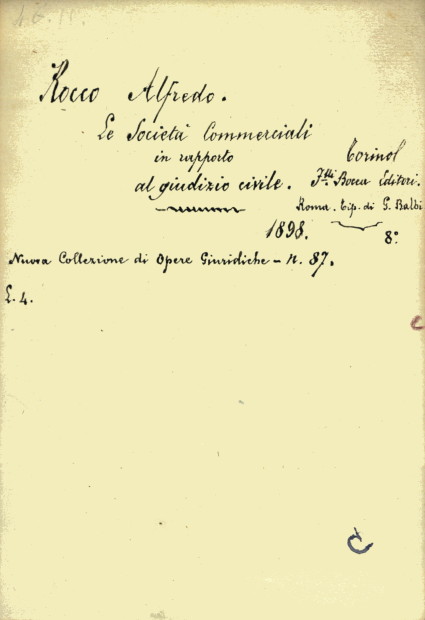 Rocco Alfredo.
Le Società Commerciali
in rapporto
al giudizio civile.
Torino
F.lli Bocca Editori.
Roma. Tip. di G. Balbi
1898.
8°
Nuova Collezione di Opere Giuridiche - n. 87.
L. 4.
C